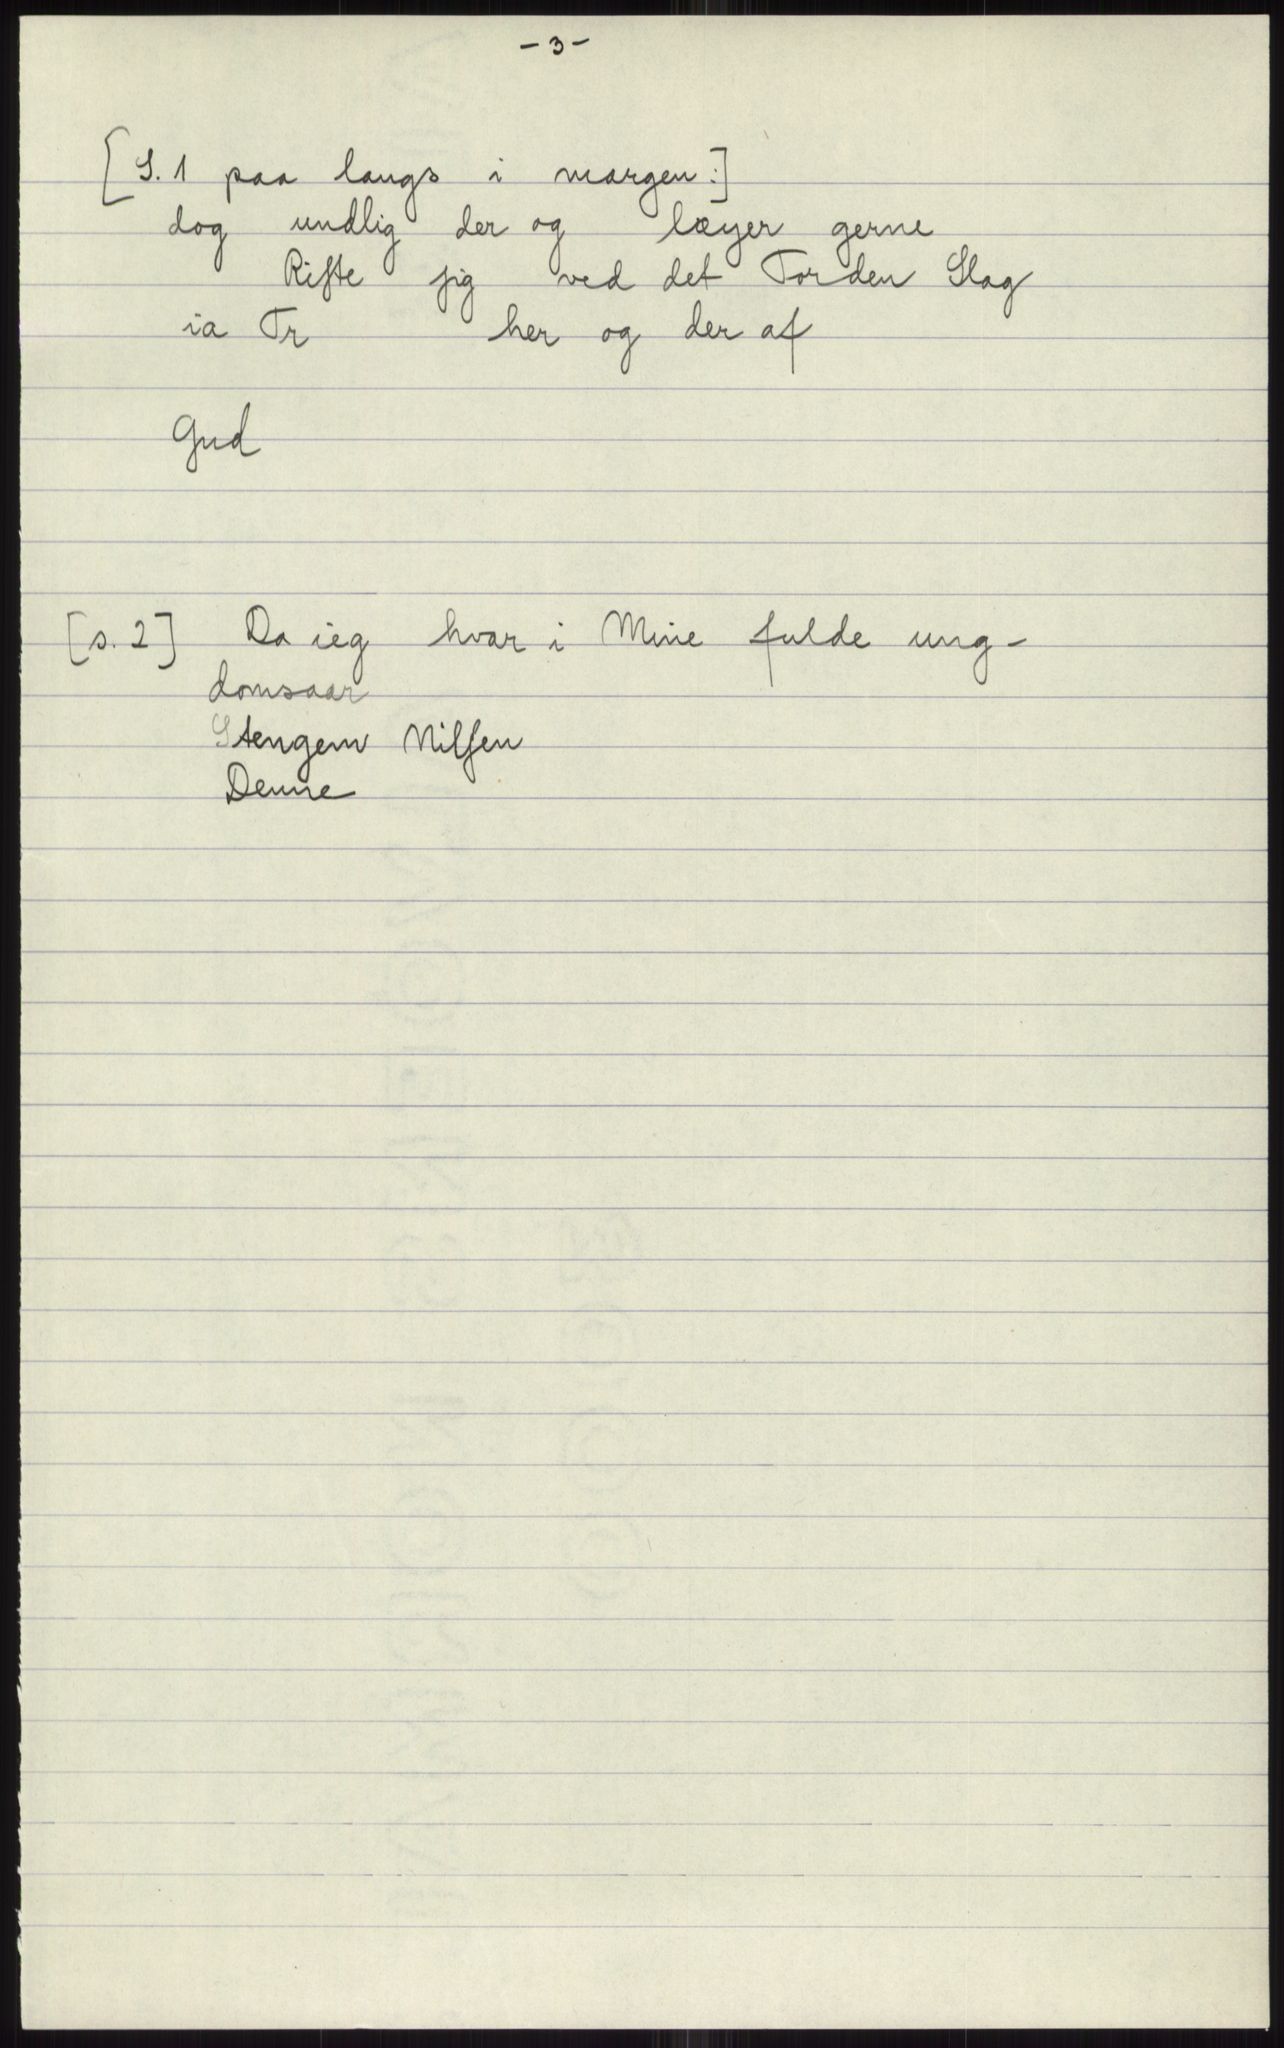 - 3 -
[S. 1 paa langs i margen:]
dog undlig der og læyer gerne
Rifte sig ved det Torden Slag
ia Tr her og der af
Gud
[s. 2] Da ieg hvar i Mine fulde ung-
domsaar
Stengem Nilsen
Denne